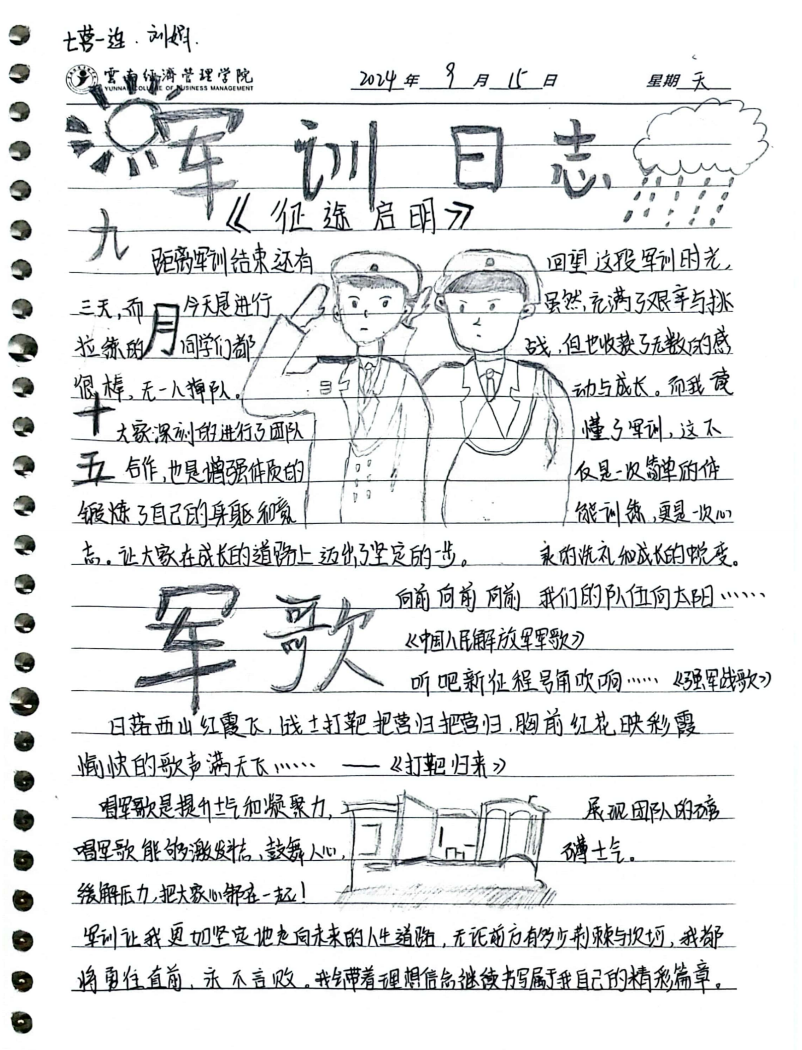 七营一连.刘娟.
雲南經濟管理学院
YUNNAN COLLEGE OF BUSINESS MANAGEMENT
2024年9月15日 星期天
军训日志
《征途启明》
九月十五
距离军训结束还有
三天,而今天是进行
拉练的同学们都
很棒,无一人掉队。
大家深刻的进行了团队
合作,也是增强体质的
锻炼了自己的身躯和意
志。让大家在成长的道路上迈出了坚定的一步。
回望这段军训时光,
虽然,充满了艰辛与挑
战,但也收获了无数的感
动与成长。而我读
懂了军训,这不
仅是一次简单的体
能训练,更是一次心
灵的洗礼和成长的蜕变。
军歌
向前向前向前 我们的队伍向太阳……
《中国人民解放军军歌》
听吧新征程号角吹响……《强军战歌》
日落西山红霞飞,战士打靶把营归把营归,胸前红花映彩霞
愉快的歌声满天飞…… ——《打靶归来》
唱军歌是提升士气和凝聚力,
唱军歌能够激发斗志,鼓舞人心,
缓解压力,把大家心绑在一起!
展现团队的磅
礴士气。
军训让我更加坚定地走向未来的人生道路,无论前方有多少荆棘与坎坷,我都
将勇往直前,永不言败。我会带着理想信念继续书写属于我自己的精彩篇章。